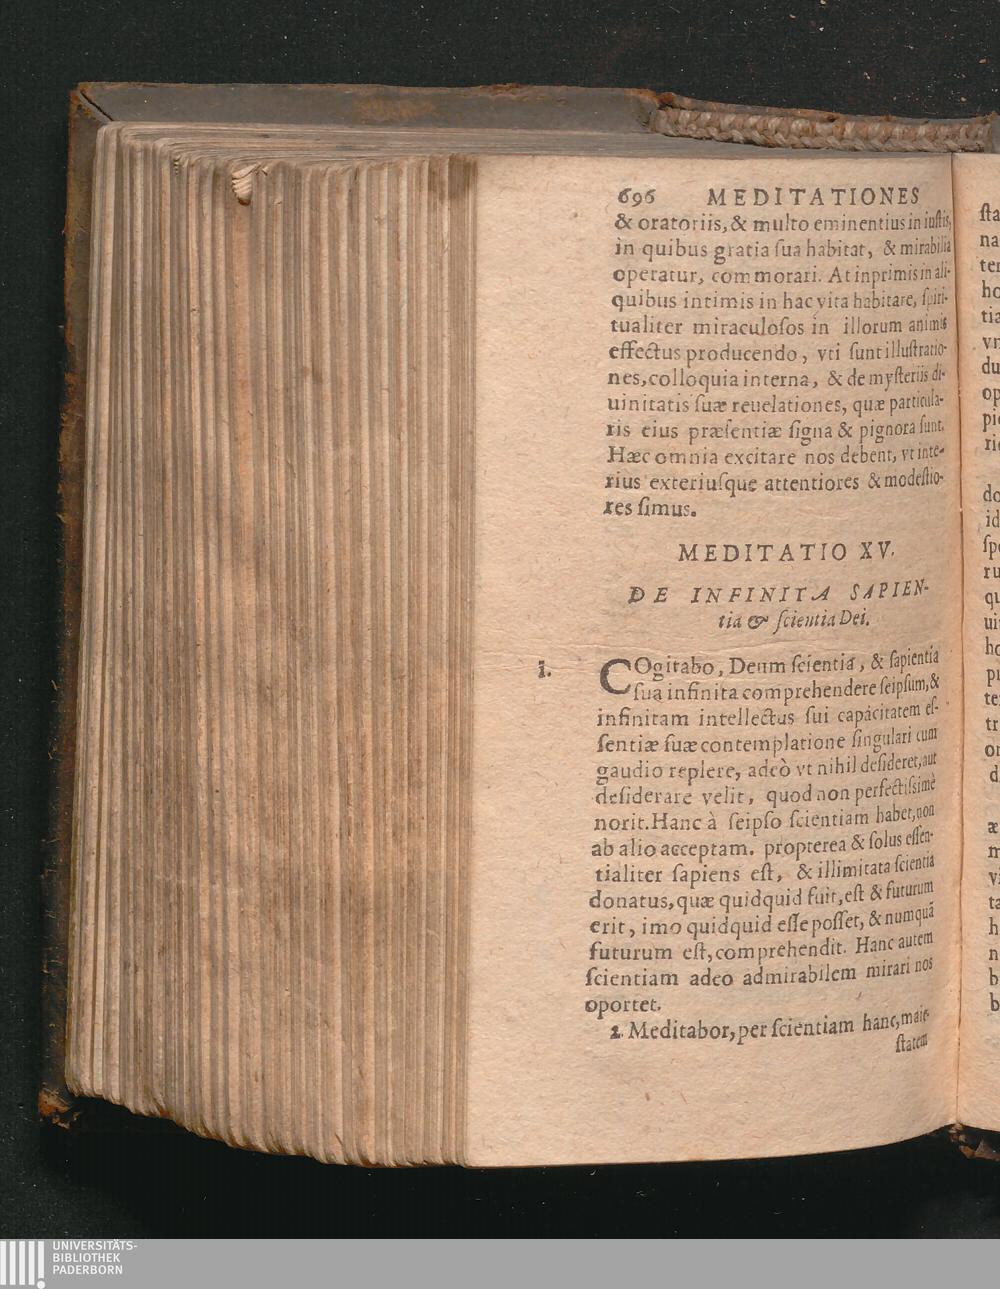 696 MEDITATIONES
& oratoriis, & multo eminentius in iustis,
in quibus gratia sua habitat, & mirabilia
operatur, commorari. At inprimis in ali-
quibus intimis in hac vita habitare, spiri-
tualiter miraculosos in illorum animis
effectus producendo, vti sunt illustratio-
nes, colloquia interna, & de mysteriis di-
uinitatis suæ reuelationes, quæ particula-
ris eius præsentiæ signa & pignora sunt.
Hæc omnia excitare nos debent, vt inte-
rius exteriusque attentiores & modestio-
res simus.
MEDITATIO XV.
DE INFINITA SAPIEN-
tia & scientia Dei.
1. COgitabo, Deum scientia, & sapientia
sua infinita comprehendere seipsum, &
infinitam intellectus sui capacitatem es-
sentiæ suæ contemplatione singulari cum
gaudio replere, adeò vt nihil desideret, aut
desiderare velit, quod non perfectissimè
norit. Hanc à seipso scientiam habet, non
ab alio acceptam. propterea & solus essen-
tialiter sapiens est, & illimitata scientia
donatus, quæ quidquid fuit, est & futurum
erit, imo quidquid esse posset, & numquã
futurum est, comprehendit. Hanc autem
scientiam adeo admirabilem mirari nos
oportet.
2. Meditabor, per scientiam hanc, maie-
statem
UNIVERSITÄTS-
BIBLIOTHEK
PADERBORN